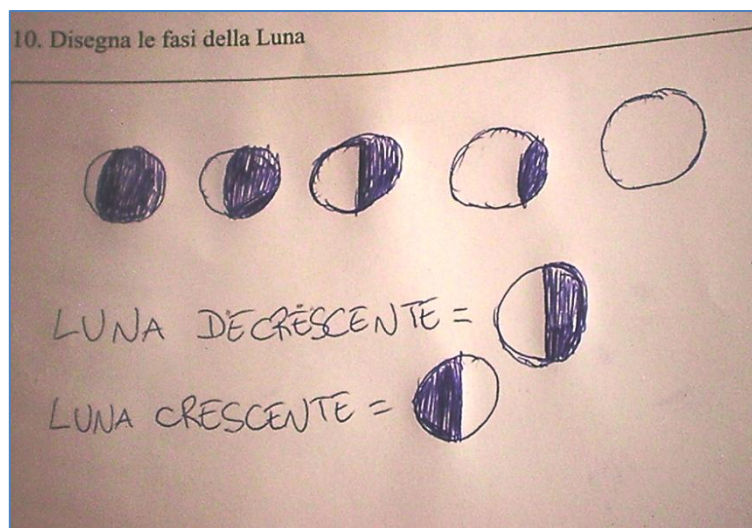 10. Disegna le fasi della Luna
LUNA DECRESCENTE =
LUNA CRESCENTE =